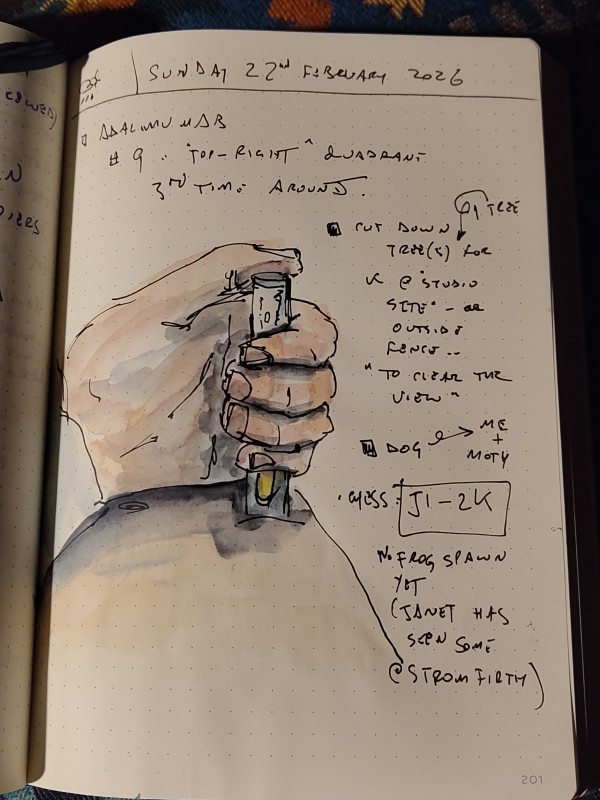 SUNDAY 22nd FEBRUARY 2026
ADALIMUMAB
# 9 .. "TOP-RIGHT" QUADRANT
3rd TIME AROUND.
1 TREE
CUT DOWN
TREE(S) FOR
K @ "STUDIO
SITE" - OR
OUTSIDE
FENCE ..
"TO CLEAR THE
VIEW"
DOG → ME
+
MOTY
CHESS: J1-2K
NO FROG SPAWN
YET
(JANET HAS
SEEN SOME
@ STROMFIRTH)
201